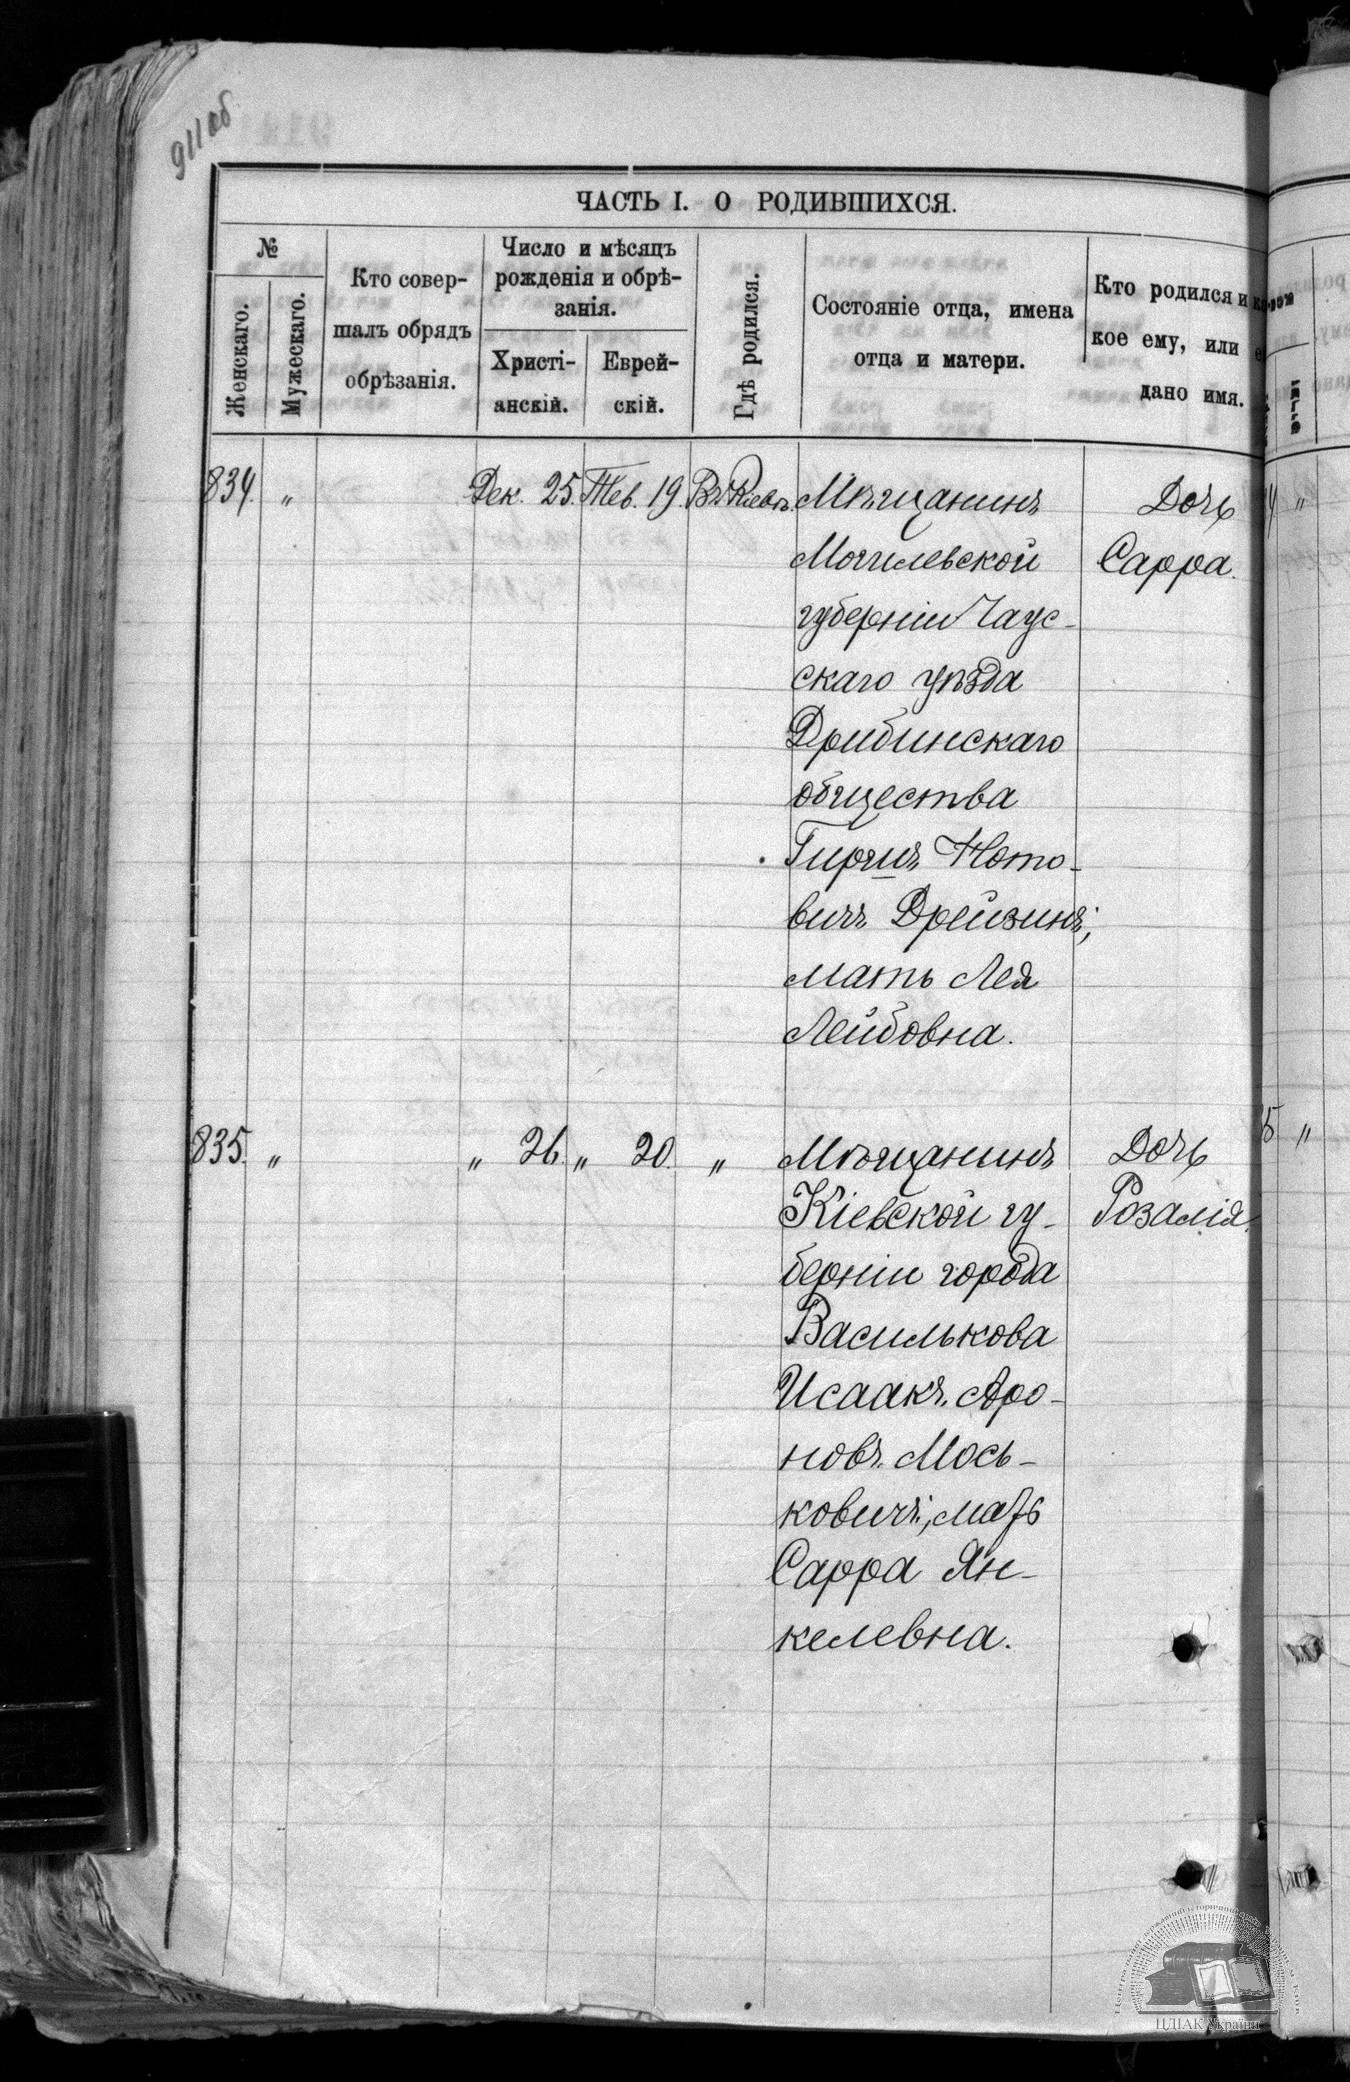 911 об
ЧАСТЬ I. О РОДИВШИХСЯ.
№
Женскаго.
Мужескаго.
Кто совер-
шалъ обрядъ
обрѣзанія.
Число и мѣсяцъ
рожденія и обрѣ-
занія.
Христі-
анскій.
Еврей-
скій.
Гдѣ родился.
Состояніе отца, имена
отца и матери.
Кто родился и ка-
кое ему, или ей
дано имя.
834. „ Дек. 25. Тев. 19. Въ Кіевѣ. Мѣщанинъ Дочь
Могилевской Сарра.
губерніи Чаус-
скаго уѣзда
Дрибинскаго
общества
Гиршъ Ното-
вичъ Дрейзинъ;
мать Лея
Лейбовна.
835. „ „ 26. „ 20. „ Мѣщанинъ Дочь
Кіевской гу- Розалія.
берніи города
Василькова
Исаакъ Аро-
новъ Мось-
ковичъ, мать
Сарра Ян-
келевна.
ЦДІАК України